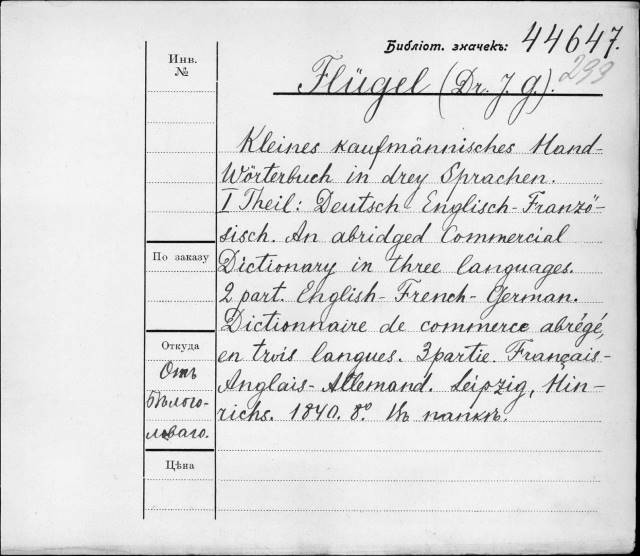 Библіот. значекъ: 44647.
299
Инв.
№
Flügel (Dr. J. G.).
Kleines kaufmännisches Hand-
Wörterbuch in drey Sprachen.
I Theil: Deutsch-Englisch-Franzö-
sisch. An abridged Commercial
По заказу
Dictionary in three languages.
2 part. English-French-German.
Dictionnaire de commerce abrégé,
Откуда
en trois langues. 3 partie. Français-
Отъ
Anglais-Allemand. Leipzig, Hin-
Бѣлого-
richs. 1840. 8º. Въ папкѣ.
ловаго.
Цѣна